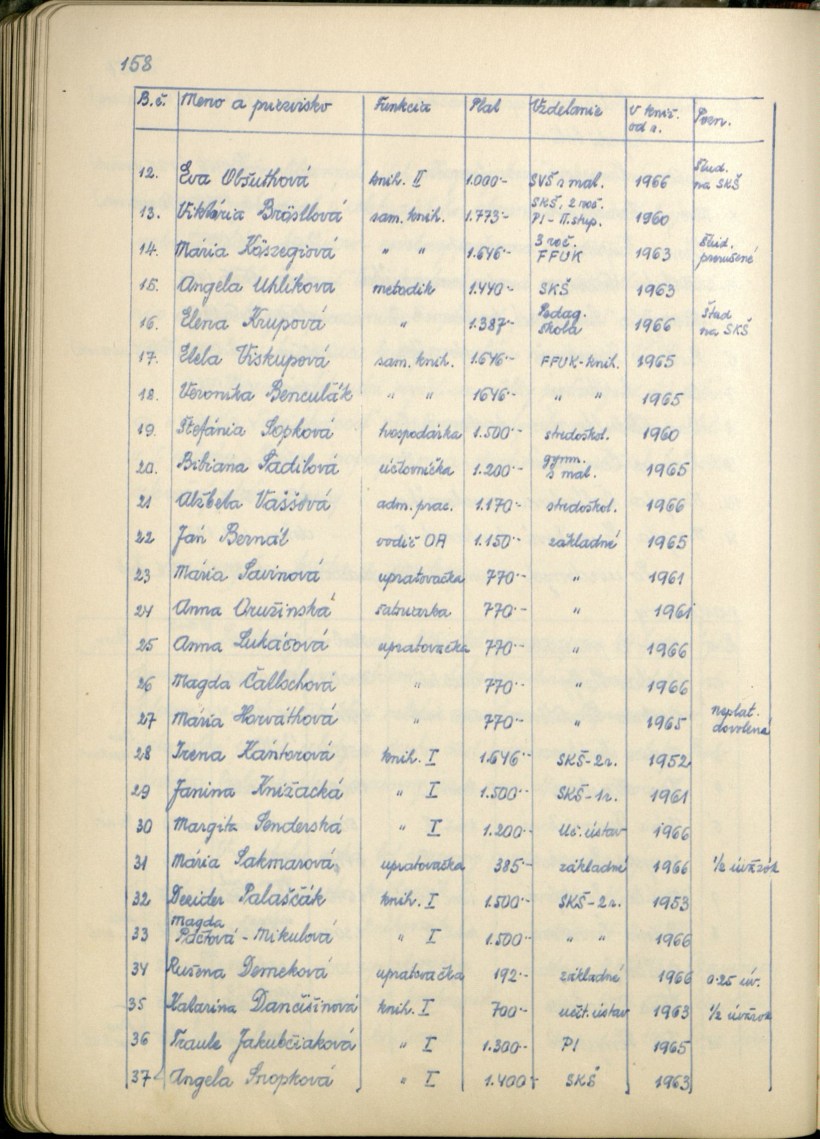 158
B.č. Meno a priezvisko Funkcia Plat Vzdelanie V kniž. od r. Pozn.
12. Eva Obšuthová knih. II 1.000·- SVŠ s mat. 1966 Štud. na SKŠ
13. Viktória Bröstlová sam. knih. 1.773·- SKŠ, 2 roč. PI - II. stup. 1960
14. Mária Köszegiová " " 1.646·- 3 roč. FFUK 1963 štúd. prerušené
15. Angela Uhlíková metodik 1.440·- SKŠ 1963
16. Elena Krupová " 1.387·- Pedag. škola 1966 Štud na SKŠ
17. Elela Viskupová sam. knih. 1.646·- FFUK-knih. 1965
18. Veronika Benculák " " 1646·- " " 1965
19. Štefánia Sopková hospodárka 1.500·- stredoškol. 1960
20. Bibiana Sadilová účtovníčka 1.200·- gymn. s mat. 1965
21 Alžbeta Vaššová adm. prac. 1.170·- stredoškol. 1966
22 Ján Bernát vodič OA 1.150·- základné 1965
23 Mária Savinová upratovačka 770·- " 1961
24 Anna Oružinská šatniarka 770·- " 1961
25 Anna Lukáčová upratovačka 770·- " 1966
26 Magda Čallschová " 770·- " 1966
27 Mária Horváthová " 770·- " 1965 neplat. dovolená
28 Irena Kántorová knih. I 1.646·- SKŠ-2r. 1952
29 Janina Knižacká " I 1.500·- SKŠ-1r. 1961
30 Margita Senderská " I 1.200·- Uč. ústav 1966
31 Mária Sakmarová upratovačka 385·- základné 1966 1/2 úväzok
32 Dezider Palaščák knih. I 1.500·- SKŠ-2r. 1953
33 Magda Páčtová - Mikulová " I 1.500·- " " 1966
34 Ružena Demeková upratovačka 192·- základné 1966 0.25 úv.
35 Katarína Dančišinová knih. I 700·- učit. ústav 1963 1/2 úväzok
36 Traute Jakubčiaková " I 1.300·- PI 1965
37 Angela Snopková " I 1.400·- SKŠ 1963